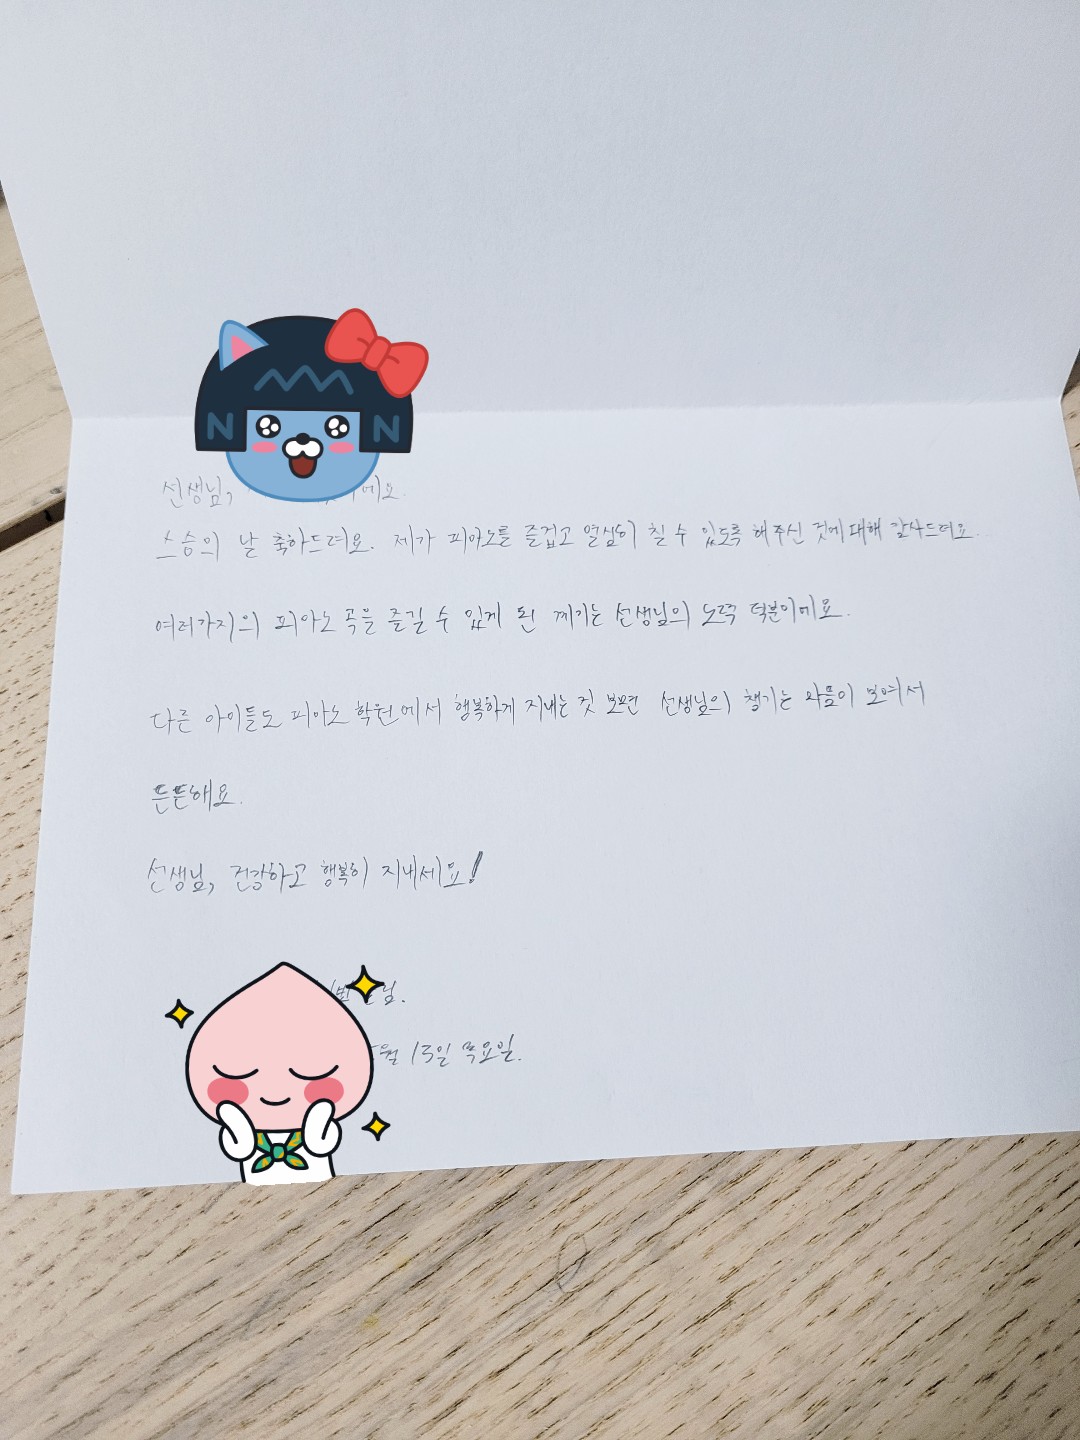 선생님, 에요.
스승의 날 축하드려요. 제가 피아노를 즐겁고 열심히 칠 수 있도록 해주신 것에 대해 감사드려요.
여러가지의 피아노 곡을 즐길 수 있게 된 계기는 선생님의 노력 덕분이에요.
다른 아이들도 피아노 학원에서 행복하게 지내는 것 보면 선생님의 챙기는 마음이 보여서
든든해요.
선생님, 건강하고 행복히 지내세요!
님.
월 15일 목요일.